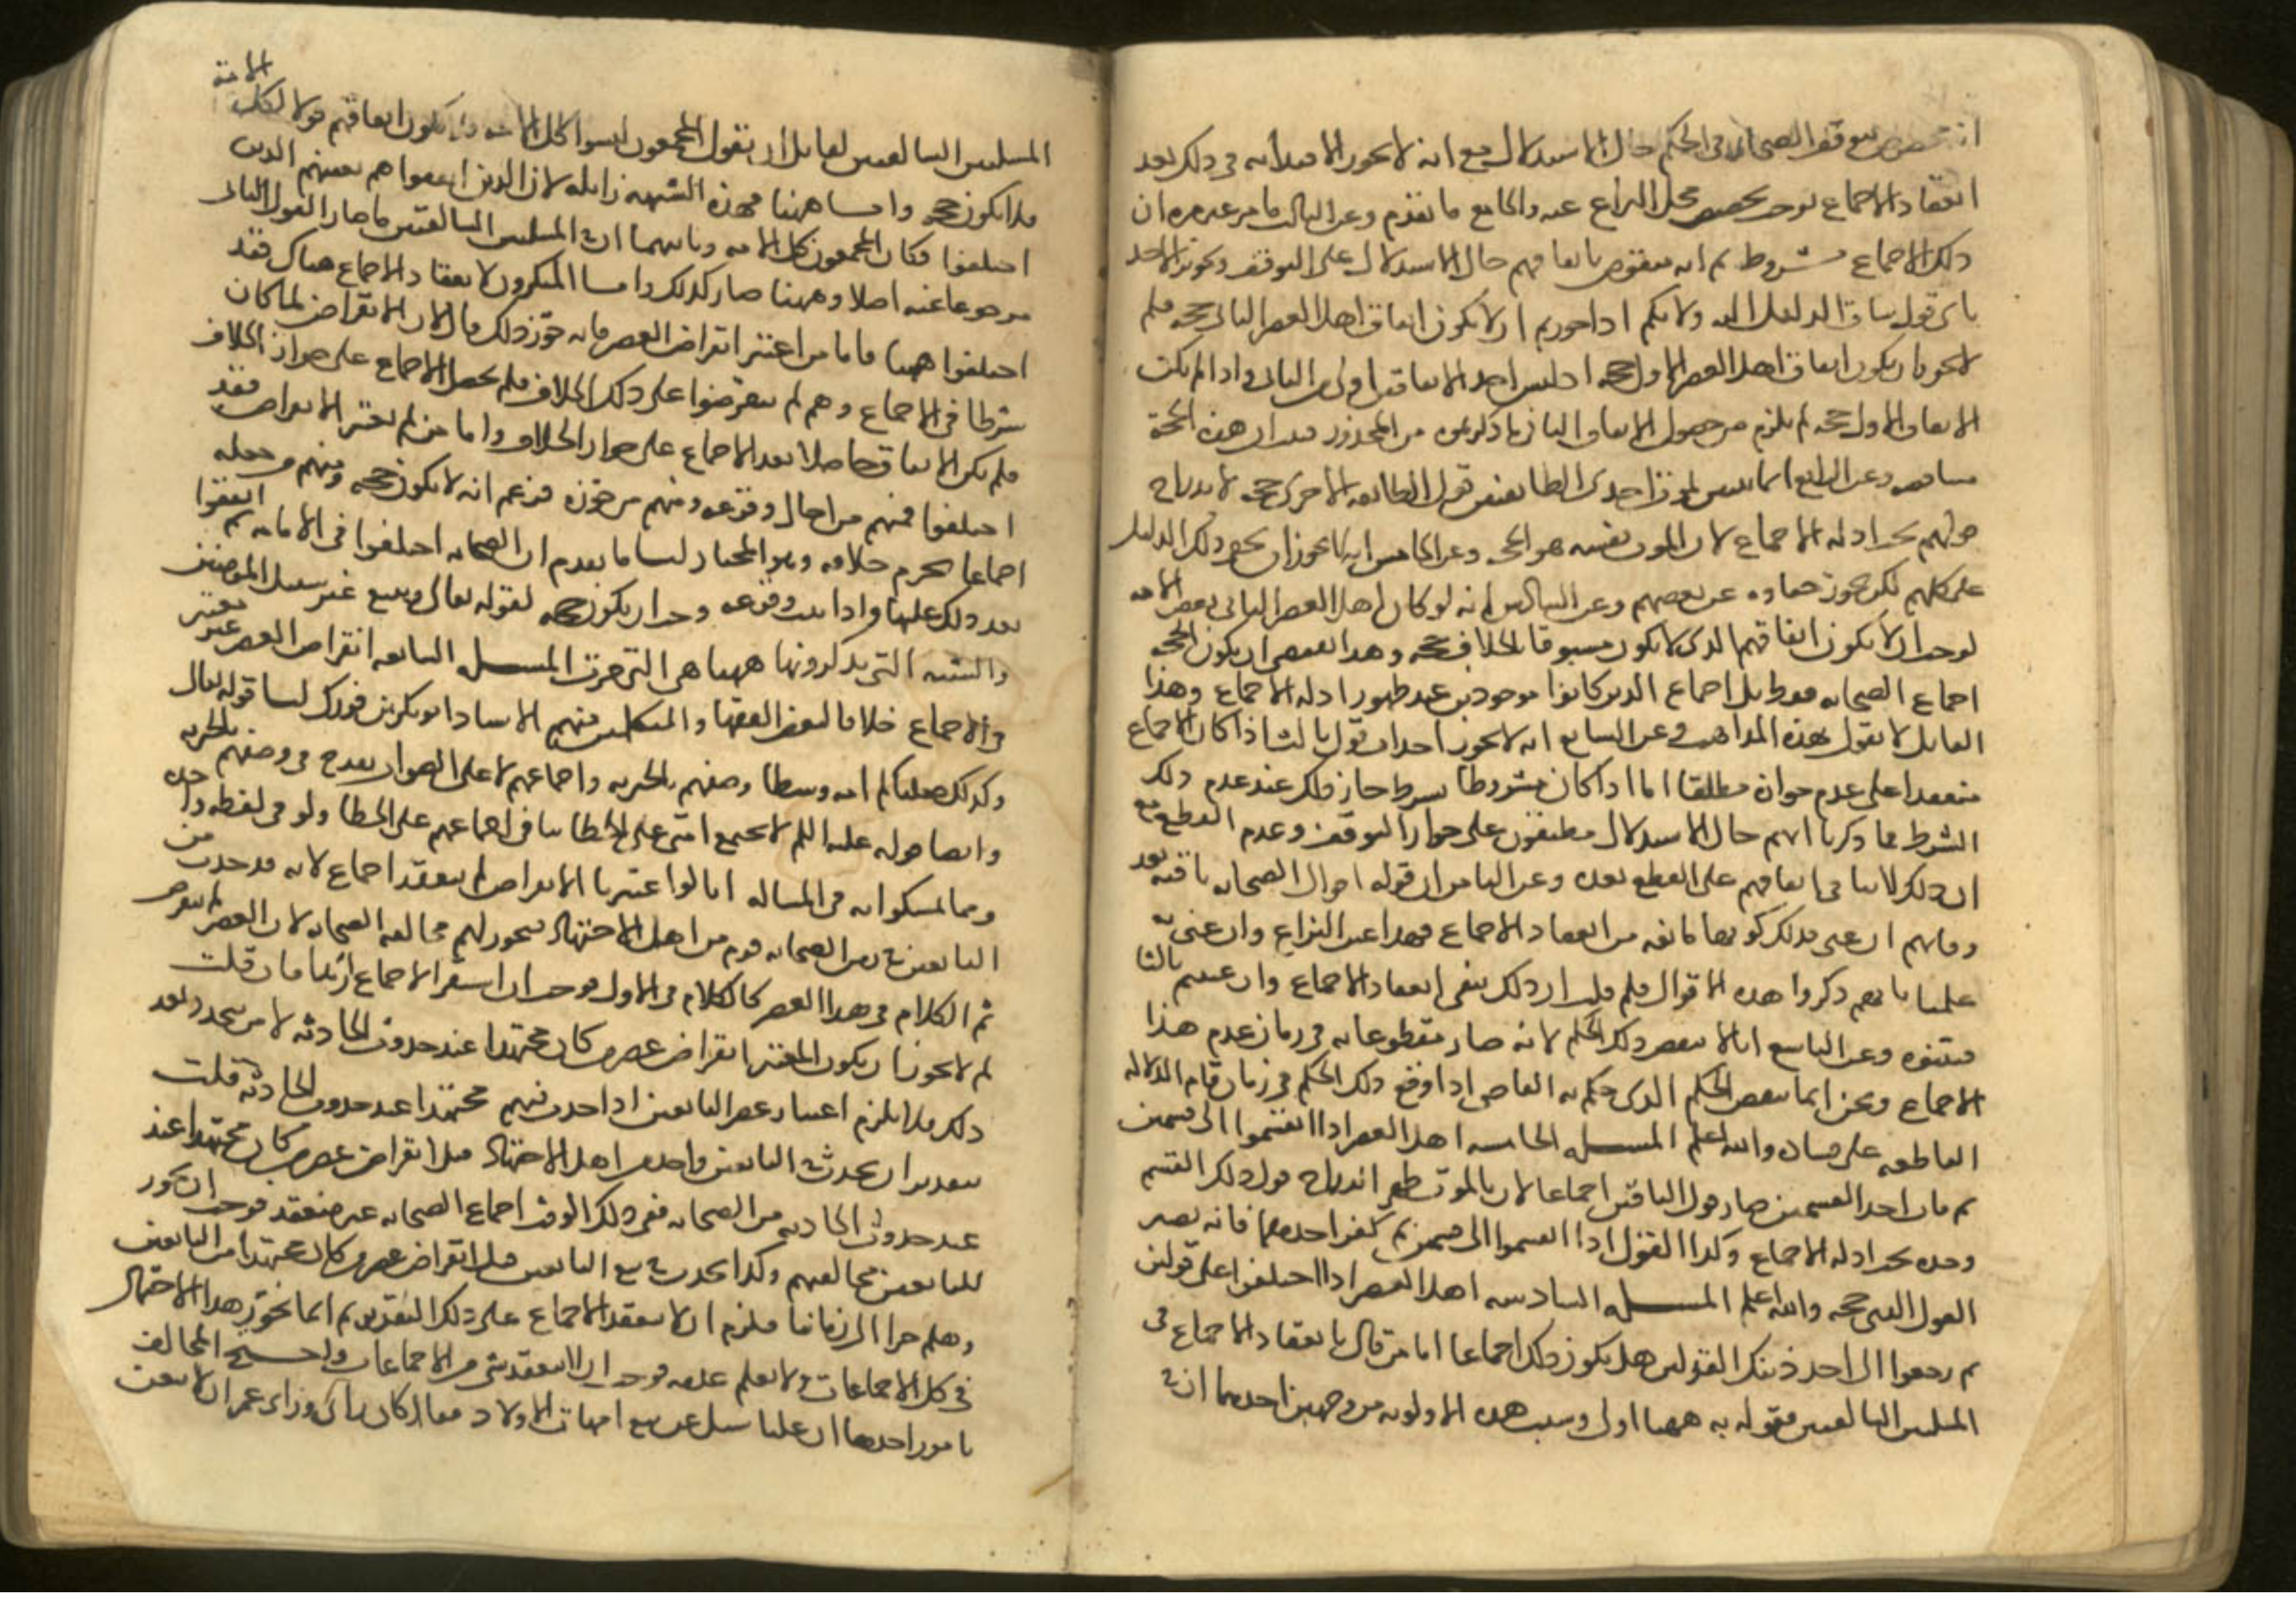 انه مخصوص بتوقف الصحابة في الحكم حال الاستدلال مع انه لا يجوز الاقتداء به في ذلك بعد
انعقاد الاجماع فوجب تخصيص محل النزاع عنه والجامع ما تقدم وعن الثالث ما مر غير مرة ان
ذلك الاجماع مشروط ثم انه منقوض باتفاقهم حال الاستدلال على التوقف وتجويز الاخذ
باي قول ساق الدليل اليه ولانكم اذا جوزتم ان لا يكون اتفاق اهل العصر الثاني حجة فلم
لا يجوز ان يكون اتفاق اهل العصر الاول حجة اذ ليس احد الاتفاقين اولى من الثاني واذا لم يكن
الاتفاق الاول حجة لم يلزم من حصول الاتفاق الثاني ما ذكرتموه من المحذور فبان ان هذه الحجة
متناقضة وعن الرابع انا نتبين بموت احدى الطائفتين قول الطائفة الاخرى حجة لاندراج
قولهم تحت ادلة الاجماع لا ان الموت نفسه هو الحجة وعن الخامس انه لا يجوز ان يخفى ذلك الدليل
على كلهم لكن يجوز خفاؤه عن بعضهم وعن السادس انه لو كان اهل العصر الثاني بعض الامة
لوجب ان لا يكون اتفاقهم الذي لا يكون مسبوقا بالخلاف حجة وهذا يقتضي ان يكون الحجة
اجماع الصحابة فقط بل اجماع الذين كانوا موجودين عند ظهور ادلة الاجماع وهذا
القائل لا يقول بهذه المذاهب وعن السابع انه لا يجوز احداث قول ثالث اذا كان الاجماع
منعقدا على عدم جوازه مطلقا اما اذا كان مشروطا بشرط جاز ذلك عند عدم ذلك
الشرط كما ذكرنا انهم حال الاستدلال مطبقون على جواز التوقف وعدم القطع مع
ان ذلك لا ينافي اتفاقهم على القطع بعده وعن الثامن ان قوله اقوال الصحابة باقية بعد
وفاتهم ان عنى بذلك كونها مانعة من انعقاد الاجماع فهذا عين النزاع وان عنى به
علمنا بانهم ذكروا هذه الاقوال فلم قلت ان ذلك ينفي انعقاد الاجماع وان عنيتم ثالثا
فبينوه وعن التاسع انا لا ننقض ذلك الحكم لانه صار مقطوعا به في زمان عدم هذا
الاجماع ونحن انما ننقض الحكم الذي حكم به القاضي اذا وقع ذلك الحكم في زمان قيام الدلالة
القاطعة على فساده والله اعلم المسـلة الخامسة اهل العصر اذا انقسموا الى قسمين
ثم مات احد القسمين صار قول الباقين اجماعا لان بالموت ظهر اندراج قول ذلك القسم
وحده تحت ادلة الاجماع وكذا القول اذا انقسموا الى قسمين ثم كفر احدهما فانه يصير
القول الثاني حجة والله اعلم المسـلة السادسة اهل العصر اذا اختلفوا على قولين
ثم رجعوا الى احد ذينك القولين هل يكون ذلك اجماعا اما من قال بانعقاد الاجماع في
المسلتين السالفتين فقوله به ههنا اولى وسبب هذه الاولوية من وجهين احدهما ان في
المسلتين السالفتين لقائل ان يقول المجمعون ليسوا كل الامة فلا يكون اتفاقهم قولا لكل الامة
فلا يكون حجة واما ههنا فهذه الشبهة زايلة لان الذين اتفقوا هم بعينهم الذين
اختلفوا فكان المجمعون كل الامة وثانيهما ان في المسلتين السالفتين ما صار القول الثاني
مرجوعا عنه اصلا وههنا صار كذلك واما المنكرون لانعقاد الاجماع هناك فقد
اختلفوا ههنا فاما من اعتبر انقراض العصر فانه جوز ذلك قال لان الانقراض لما كان
شرطا في الاجماع وهم لم ينقرضوا على ذلك الخلاف فلم يحصل الاجماع على جواز الخلاف
فلم يكن الاتفاق حاصلا بعد الاجماع على جواز الخلاف واما من لم يعتبر الانقراض فقد
اختلفوا فمنهم من احال وقوعه ومنهم من جوزه فزعم انه لا يكون حجة ومنهم من جعله
اجماعا يحرم خلافه وهو المختار لنا ما تقدم ان الصحابة اختلفوا في الامامة ثم اتفقوا
بعد ذلك عليها واذا ثبت وقوعه وجب ان يكون حجة لقوله تعالى ويتبع غير سبيل المومنين
والشبه التي يذكرونها ههنا هي التي مرت المسـلة السابعة انقراض العصر غير معتبر
في الاجماع خلافا لبعض الفقها والمتكلمين منهم الاستاذ ابو بكر بن فورك لنا قوله تعالى
وكذلك جعلناكم امة وسطا وصفهم بالخيرية واجماعهم لا على الصواب يقدح في وصفهم بالخيرية
وايضا قوله عليه السلم لا تجتمع امتي على الخطا ينافي اجماعهم على الخطا ولو في لحظة واحدة
ومما تمسكوا به في المسالة انا لو اعتبرنا الانقراض لم ينعقد اجماع لانه قد حدث من
التابعين في زمن الصحابة قوم من اهل الاجتهاد فيجوز لهم مخالفة الصحابة لان العصر لم ينقرض
ثم الكلام في هذا العصر كالكلام في الاول فوجب ان لا يستقر الاجماع ابدا فان قلت
لم لا يجوز ان يكون المعتبر انقراض عصر من كان مجتهدا عند حدوث الحادثة لا من يتجدد بعد
ذلك فلا يلزم اعتبار عصر التابعين اذا حدث فيهم مجتهد عند حدوث الحادثة قلت
بتقدير ان يحدث في التابعين واحد من اهل الاجتهاد قبل انقراض عصر من كان مجتهدا عند
عند حدوث الحادثة من الصحابة ففي ذلك الوقت اجماع الصحابة غير منعقد فوجب ان يجوز
للتابعين مخالفتهم وكذا يحدث تبع التابعين قبل انقراض عصر من كان مجتهدا من التابعين
وهلم جرا الى زماننا فيلزم ان لا ينعقد الاجماع على ذلك التقدير ثم انا نجوز هذا الاحتمال
في كل الاجماعات ولا نعلم عدمه فوجب ان لا ينعقد شي من الاجماعات واحتـج المخالف
بامور احدها ان عليا سئل عن بيع امهات الاولاد فقال كان رايي وراي عمر ان لا يبعن